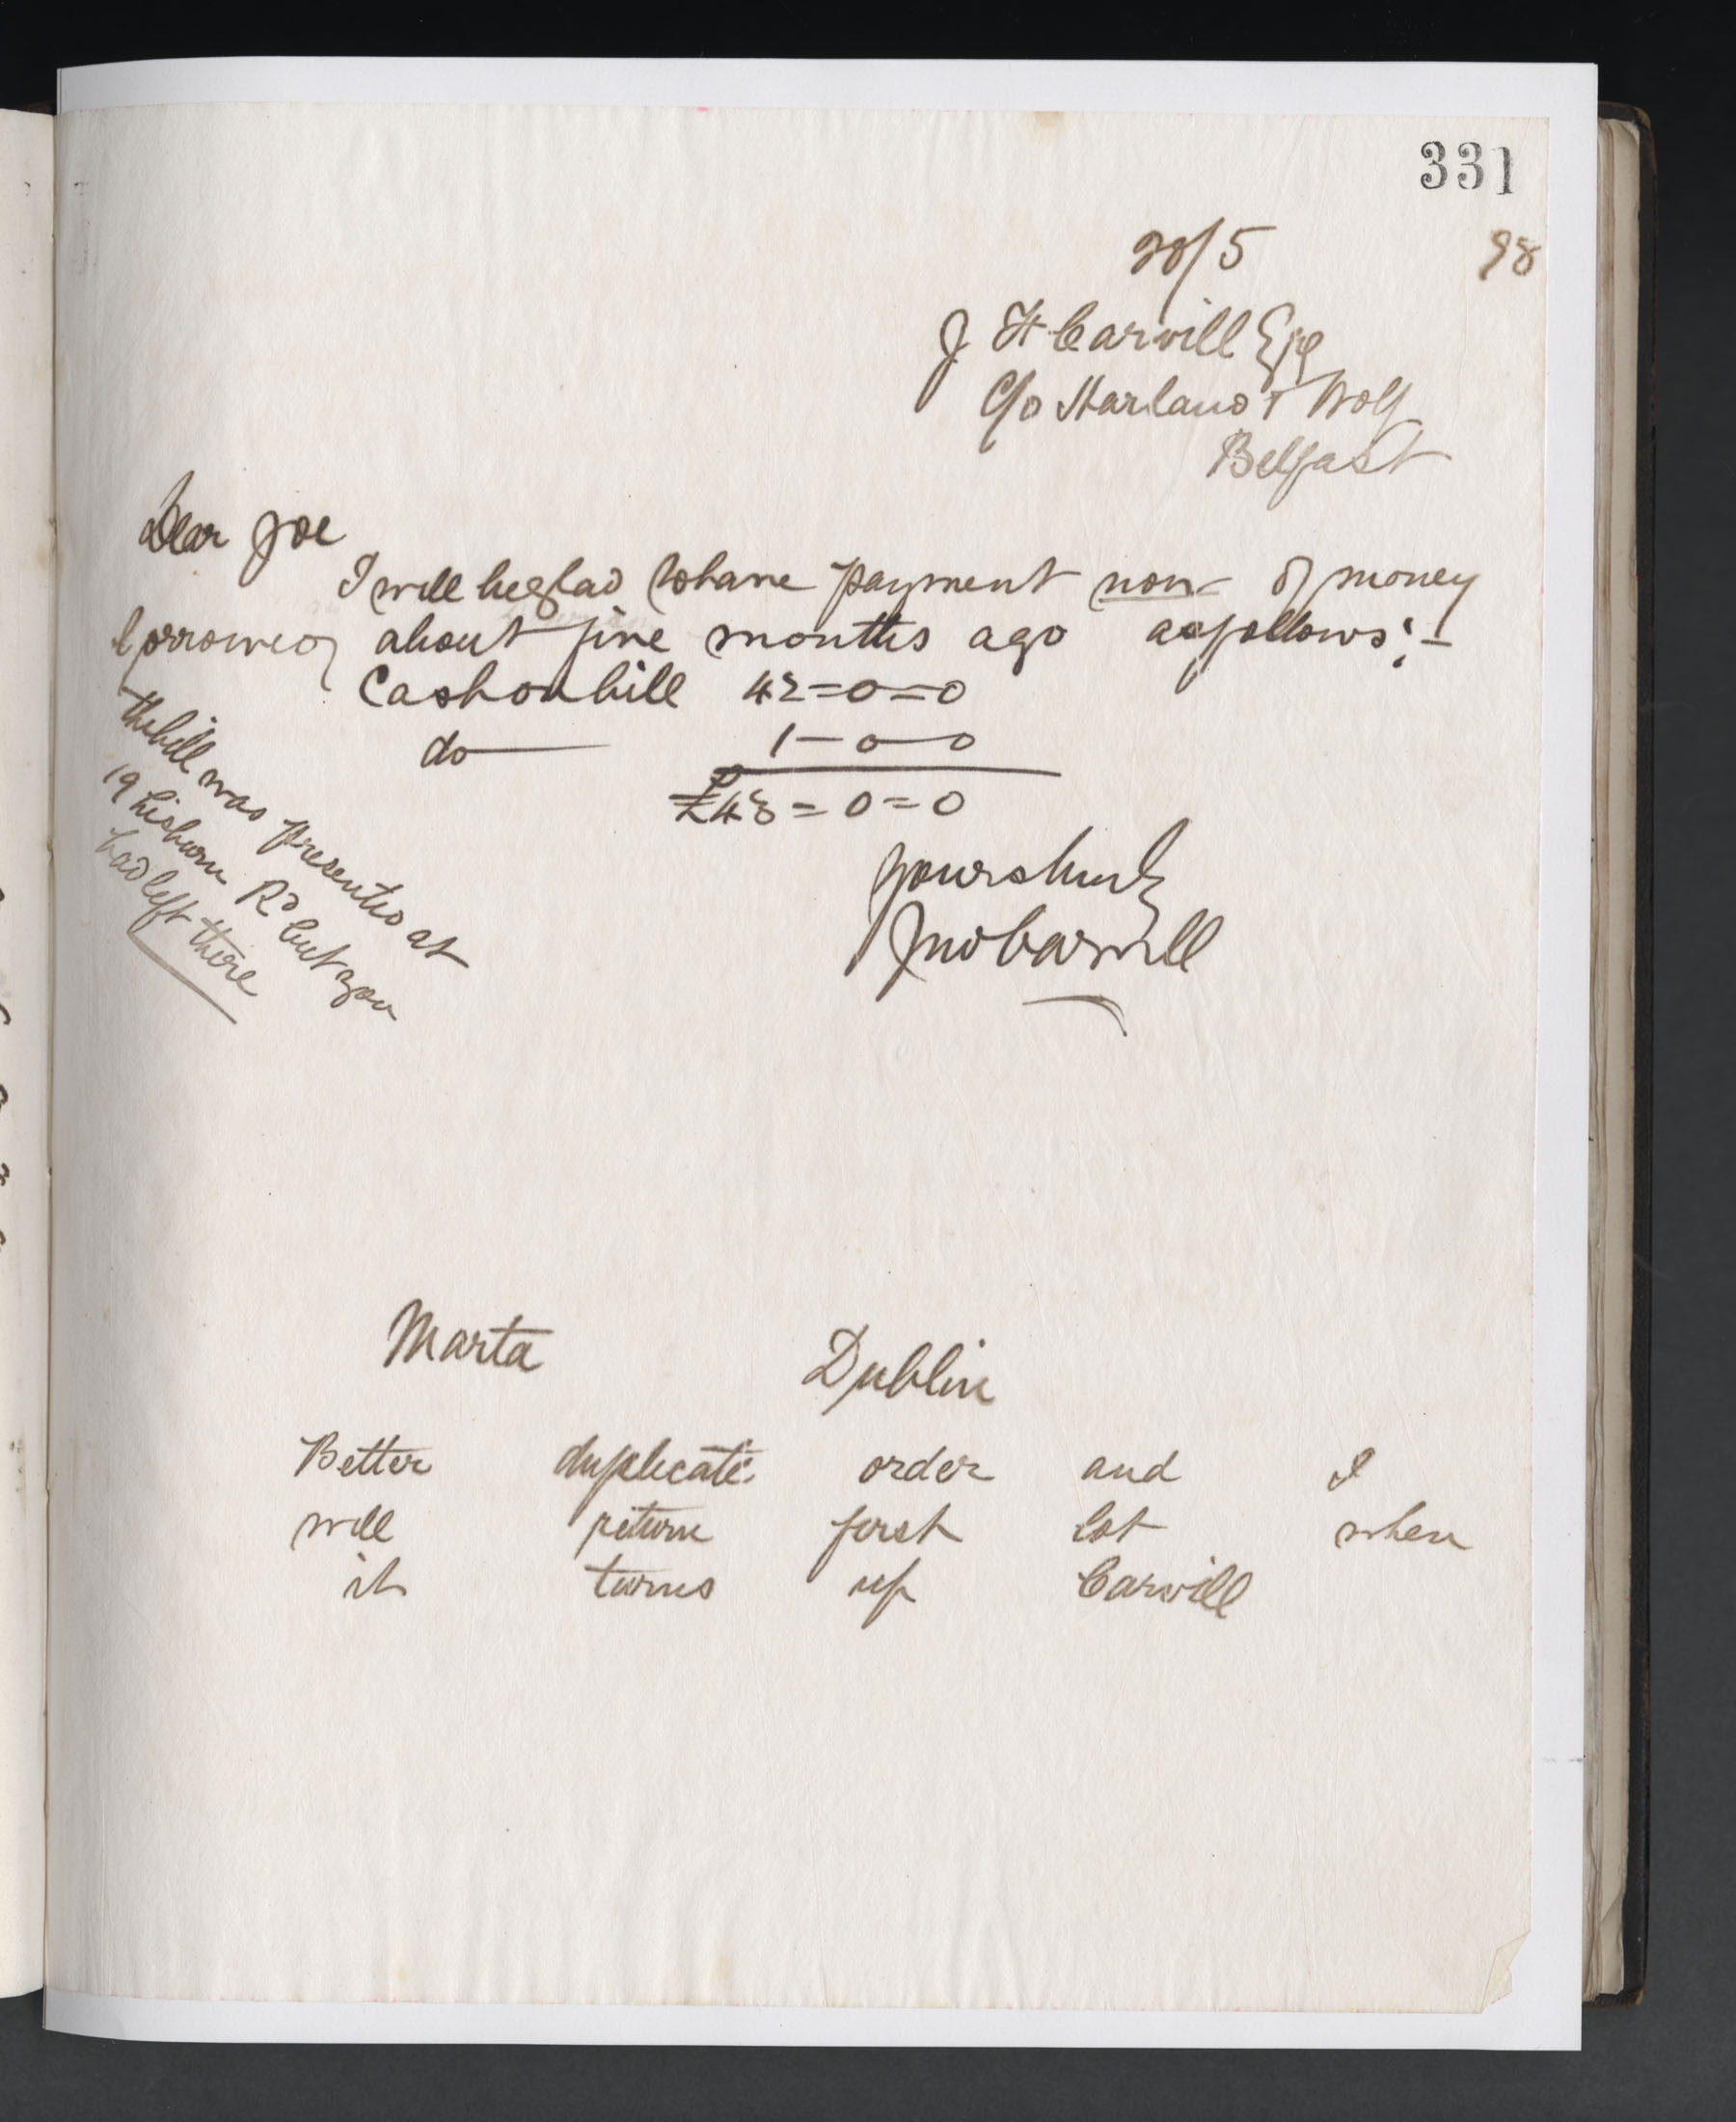 331
28/5 98
J H Carvill Esq
C/o Harland & Wolf
Belfast
Dear Joe
I will be glad to have payment now of money
borrowed about five months ago as follows:-
Cash on bill 42=0=0
do 1-0-0
£43=0=0
the bill was presented at
19 Lisburn Rd but you
had left there
Yours truly
Jno Carvill
Marta Dublin
Better duplicate order and I
will return first lot when
it turns up Carvill